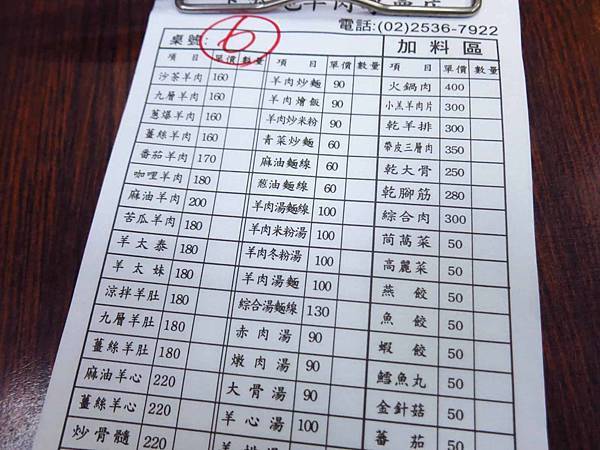 電話:(02)2536-7922
桌號: 6 加料區
項目 單價 數量 項目 單價 數量 項目 單價 數量
沙茶羊肉 160 羊肉炒麵 90 火鍋肉 400
九層羊肉 160 羊肉燴飯 90 小羔羊肉片 300
蔥爆羊肉 160 羊肉炒米粉 90 乾羊排 300
薑絲羊肉 160 青菜炒麵 60 帶皮三層肉 350
番茄羊肉 170 麻油麵線 60 乾大骨 250
咖哩羊肉 180 葱油麵線 60 乾腳筋 280
麻油羊肉 200 羊肉湯麵線 100 綜合肉 300
苦瓜羊肉 180 羊肉米粉湯 100 茼萵菜 50
羊太泰 180 羊肉冬粉湯 100 高麗菜 50
羊太妹 180 羊肉湯麵 100 燕餃 50
涼拌羊肚 180 綜合湯麵線 130 魚餃 50
九層羊肚 180 赤肉湯 90 蝦餃 50
薑絲羊肚 180 燉肉湯 90 鱈魚丸 50
麻油羊心 220 大骨湯 90 金針菇 50
薑絲羊心 220 羊心湯 100 番茄 50
炒骨髓 220